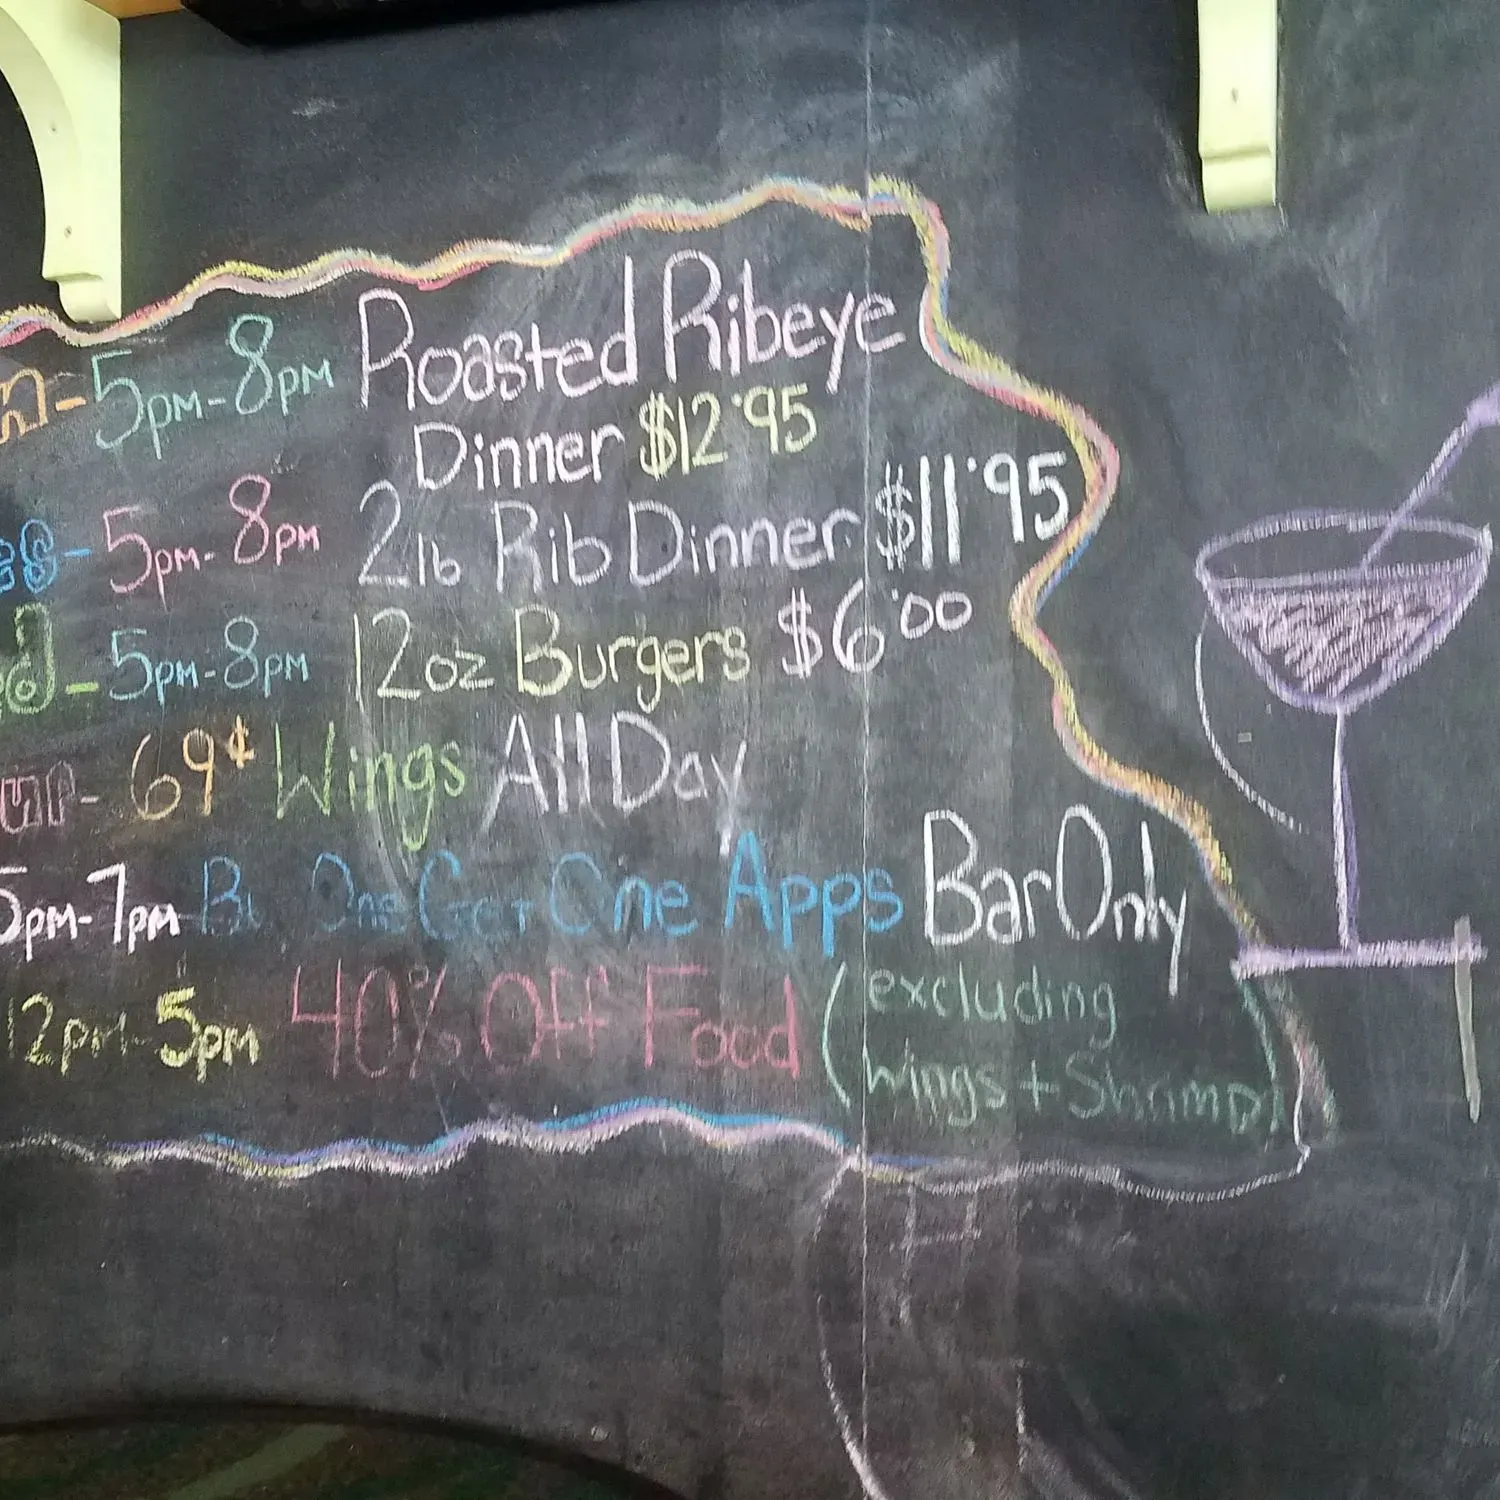 n - 5pm - 8pm Roasted Ribeye
Dinner $12.95
es - 5pm - 8pm 2lb Rib Dinner $11.95
ed - 5pm - 8pm 12oz Burgers $6.00
ur - 69¢ Wings All Day
5pm - 7pm One Get One Apps Bar Only
12pm - 5pm 40% Off Food (excluding
wings + Shrimp)